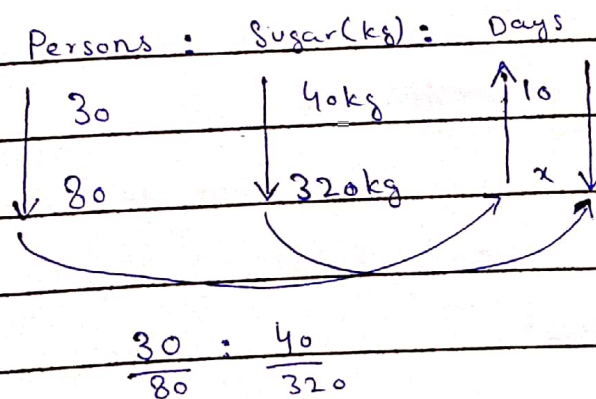 Persons : Sugar(kg) : Days
30 40kg 10
80 320kg x
30/80 : 40/320